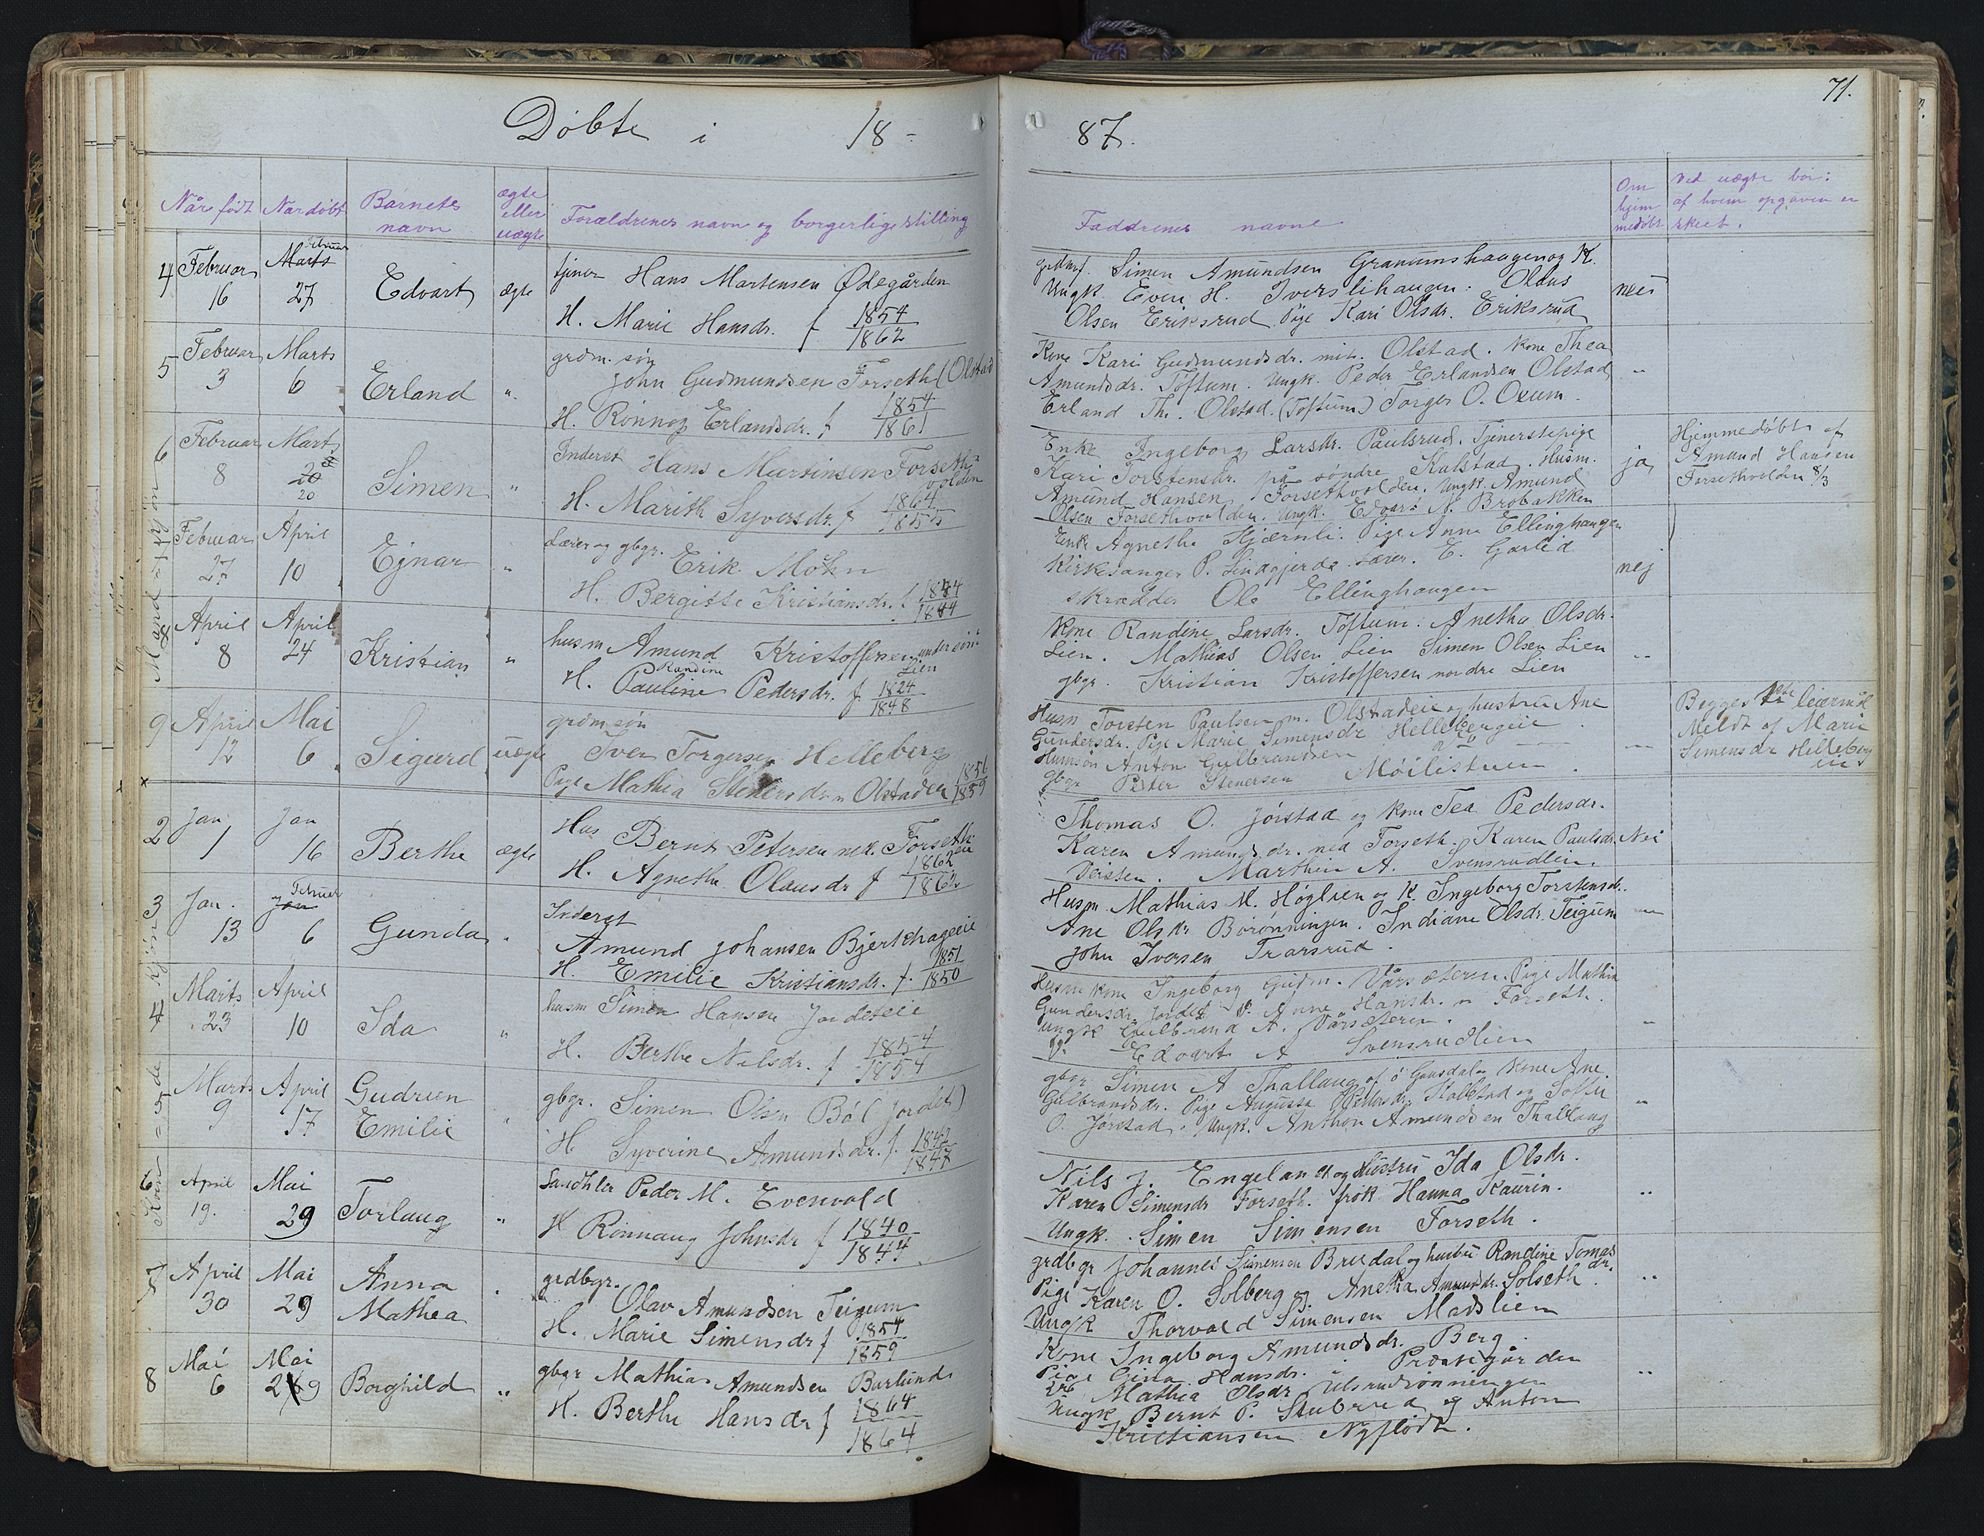 Døbte i 18-
87.
71.
Når født
Nar døbt
Barnets navn
ægte eller uægte
Forældrenes navn og borgerlige stilling
Faddrenes navne
Om hjem medøbt
Ved uægte bør:
af hvem opgaven er
skeet.
4 Februar 16
Februar
Marts 27
Edvart
ægte
tjener Hans Martensen Ødegården
H. Marie Hansdr. f 1854
1862
grdmf. Simen Amundsen Granumshaugen og K.
Ungk Even H. Iverslihaugen. Olaus
Olsen Eriksrud Pige Kari Olsdr. Eriksrud
nei
5 Februar 3
Marts 6
Erland
"
grdm. søn
John Gudmundsen Forseth (Olstad
H. Rønnog Erlandsdr. f 1854
1861
Kone Kari Gudmundsdr. mit. Olstad. Kone Thea
Amundsdr. Toftum. Ungk. Peder Erlandsen Olstad
Erland Th. Olstad. (Toftum) Torger O. Oxum.
"
6 Februar 8
Marts 20
20
Simen
"
Inderst Hans Martinsen Forseth
volden
H. Marith Syversdr. f 1864
1855
Enke Ingeborg Larsdr. Paulsrud. Tjenerstepige
Kari Torstensdr. på søndre Kulstad. Husm.
Amund Hansen Forsethvolden, Ungk. Amund
Olsen Forsethvolden. Ungk. Edvart N. Brobakken
ja
Hjemmedøbt af
Amund Hansen
Forsethvolden 8/3
Februar 27
April 10
Ejnar
"
Lærer og gbgr. Erik Mohn
H. Bergitte Kristiansdr. f 1844
1844
Enke Agnethe Hjærnli. Pige Anne Ellinghaugen
Kirkesanger P. Lindgjerde Lærer. E. Garlid
skrædder Ole Ellinghaugen
nej
8 April 8
April 24
Kristian
"
husm Amund Kristoffersen under søn
Lien
Randine
H. Pauline Pedersdr. f 1824
1848
Kone Randine Larsdr. Toftum. Anetha Olsdr.
Lien. Mathias Olsen Lien Simen Olsen Lien
gbgr. Kristian Kristoffersen nordre Lien
"
9 April 12
Mai 6
Sigurd
uægte
grdm søn
Iver Torgersen Helleberg 1856
Pige Mathia Stenersdr. Olstadeie 1859
Husm Torsten Paulsen m. Olstadeie og hustru Ane
Gundersdr. Pige Marie Simensdr Hellebergeie
Husmsøn Anton Gulbrandsen
gbgr Peter Stenersen Moilistuen
"
Begges 1ste leiermål
Meldt af Marie
Simensdr Helleberg
eie
2 Jan 1
Jan 16
Berthe
ægte
Hus Bernt Petersen ned. Forseth
eie
H. Agnethe Olausdr f 1862
1862
Thomas O. Jørstad og Kone Tea Pedersdr.
Karen Amundsdr. ned Forseth. Karen Paulsdr.
Veisten. Marthin A. Svensrudlien.
Nei
3 Jan. 13
Februar
Jan 6
Gunda
"
Inderst
Amund Johansen Bjerkhageeie
H. Emilie Kristiansdr. f. 1851
1850
Husm. Mathias M. Høglien og K. Ingeborg Torstensdr.
Ane Olsdr Bårønningen. Indiane Olsdr. Teigum
John Iversen Traasrud.
4 Marts 23
April 10
Ida
"
husm Simen Hansen Jordeteie
H. Berthe Nilsdr. f 1854
1854
Husm kone Ingeborg Gudm. Vårsæteren. Pige Mathia
Gundersdr. Jordet P. Anne Hansdr. Forseth.
Ungk Gulbrand A. Vårsæteren.
Edvart A Svensrudlien
"
5 Marts 9
April 17
Gudrun
Emilie
"
gbgr. Simen Olsen Bøl (Jordet)
H Syverine Amundsdr. f. 1842
1847
gbgr. Simen A Thallaug af ø Gausdal og Kone Ane
Gulbrandsdr. Pige Augusta Kolstad og Sofie
O. Jørstad. Ungk. Anthon Amundsen Thallaug
"
6 April 19.
Mai 29
Torlaug
"
Landhdler Peder M. Evenvold
H Rønnaug Johnsdr f 1840
1844
Nils J. Engeland og Hustru Ida Olsdr.
Karen Simensdr Forseth. frøk. Hanna Kaurin.
Ungk. Simen Simensen Forseth.
"
7 April 30
Mai 29
Anna
Mathea
"
grdbgr.
Olav Amundsen Teigum
H. Marie Simensdr f 1854
1859
grdbgr Johannes Simensen Bredal og hustru Randine Tomas
dr.
Pige Karen O. Solberg og Anetha Amundsdr. Solseth
Ungk Thorvald Simensen Madslien
"
8 Mai 6
Mai 29
Borghild
"
gbgr Mathias Amundsen Burlund
H. Berthe Hansdr f 1864
1864
Kone Ingeborg Amundsdr. Berg.
Pige Gina Hansdr. i Præstegården
Mathea Olsdr Ulsrudrønningen
Ungk Bernt P. Stubrud og Anton
Kristiansen Nyflødt.
"